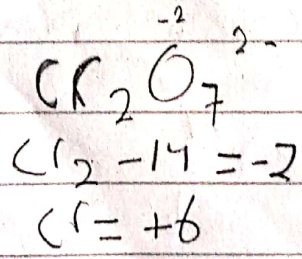 -2
Cr₂O₇²⁻
Cr₂ -14 = -2
Cr = +6